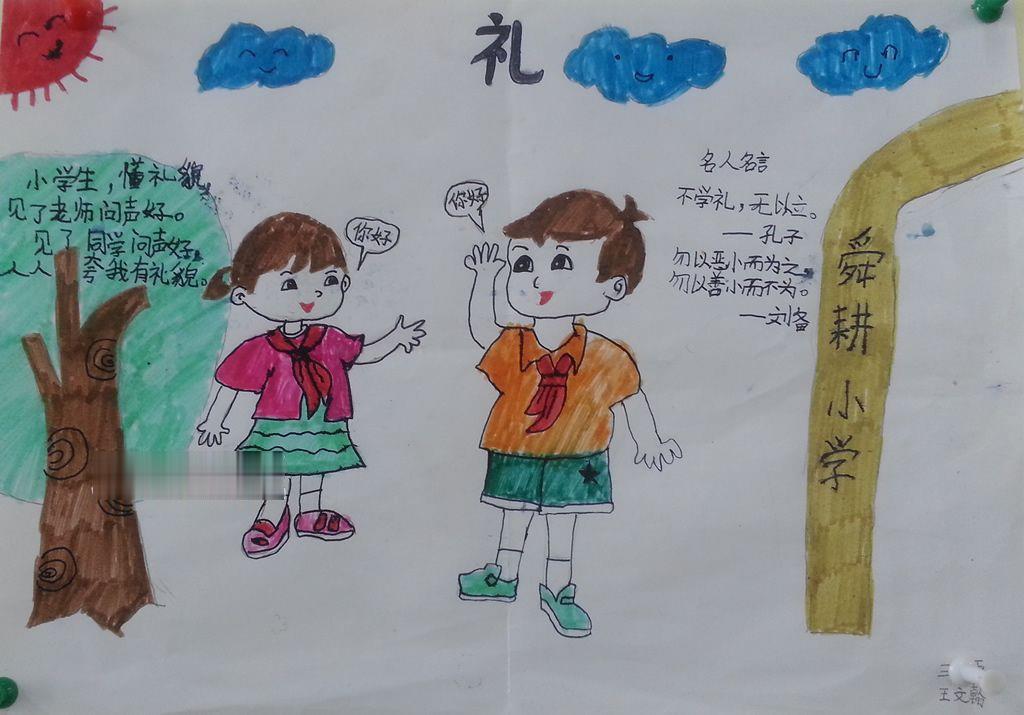 礼
小学生，懂礼貌，
见了老师问声好。
见了同学问声好，
人人夸我有礼貌。
你好
你好
名人名言
不学礼，无以立。
—孔子
勿以恶小而为之，
勿以善小而不为。
—刘备
舜耕小学
三
王文翰